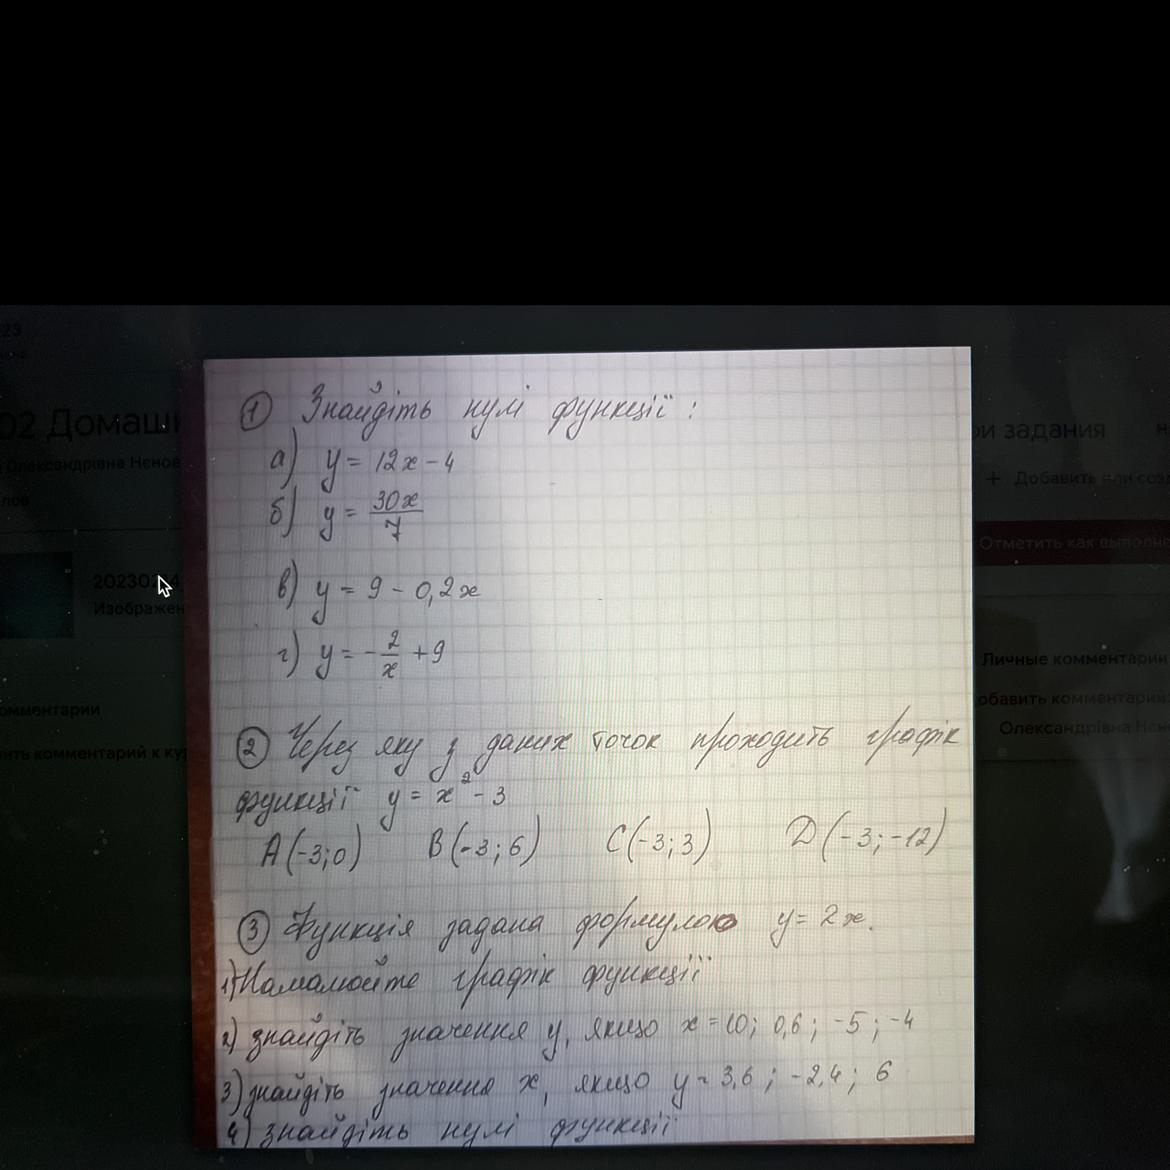 23
02 Домашн
ри задания
Олександрівна Ненов
+ Добавить или созд
лов
Отметить как выполне
202302 4
Изображен
Личные комментарии
омментарии
обавить комментарий
Олександрівна Нєно
ить комментарий к кур
① Знайдіть нулі функції:
а) y = 12x - 4
б) y = 30x/7
в) y = 9 - 0,2x
г) y = -2/x + 9
② Через яку з даних точок проходить графік
функції y = x² - 3
A(-3;0) B(-3;6) C(-3;3) D(-3;-12)
③ Функція задана формулою y = 2x.
1) Намалюйте графік функції
2) знайдіть значення y, якщо x = 10; 0,6; -5; -4
3) знайдіть значення x, якщо y = 3,6; -2,4; 6
4) знайдіть нулі функції